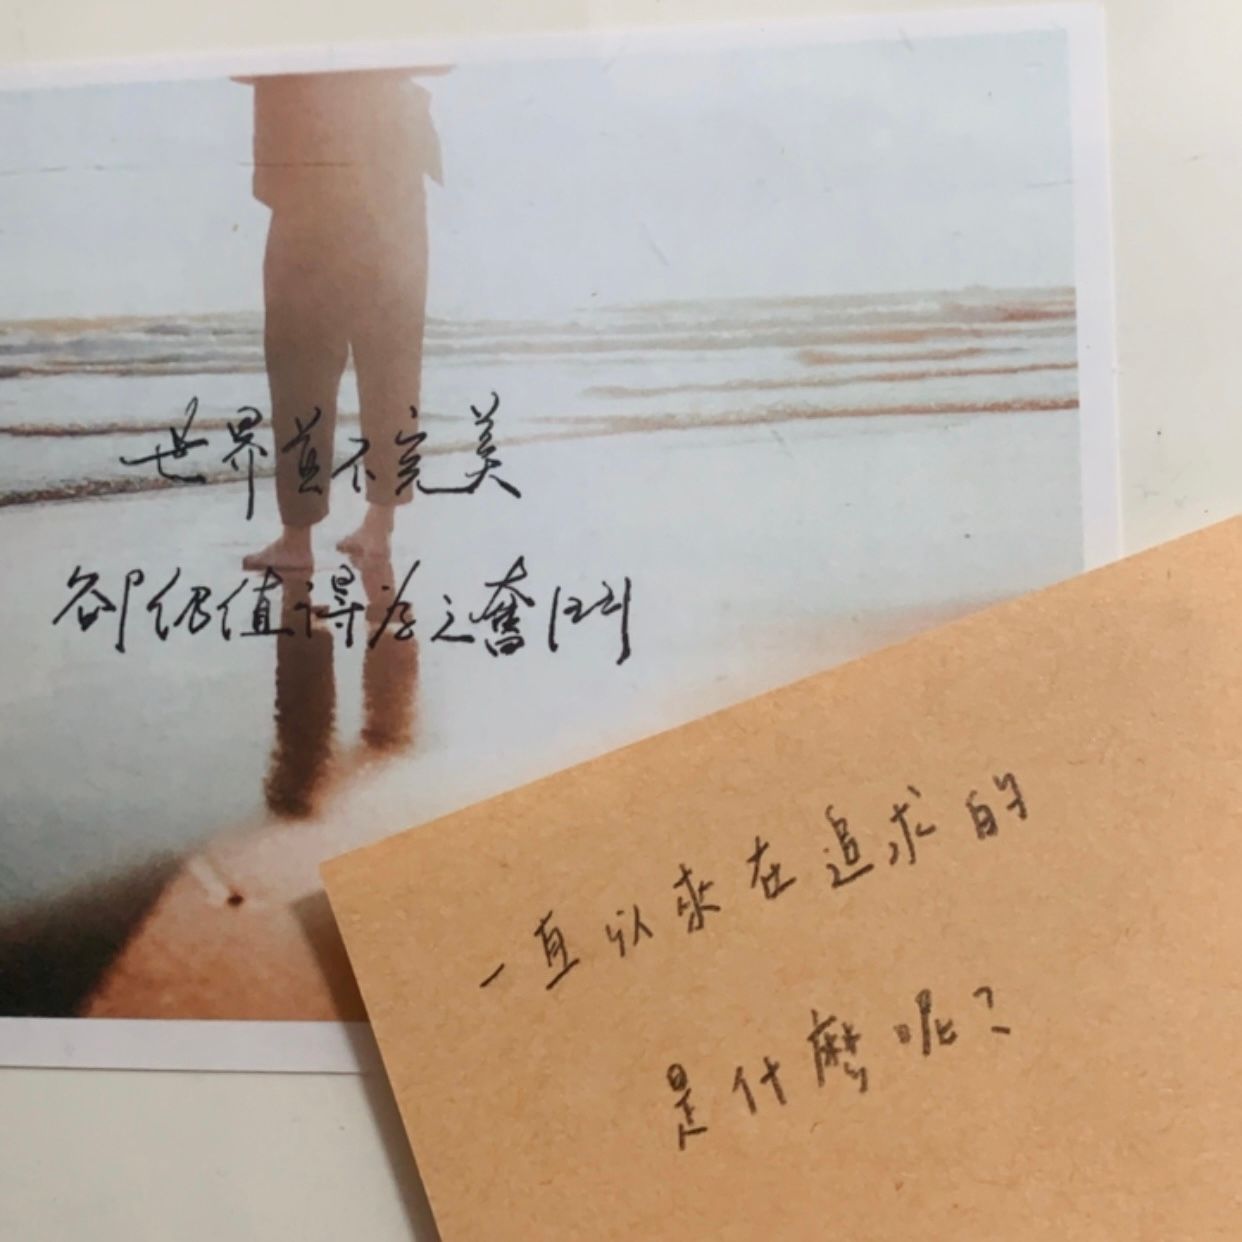 世界並不完美
卻仍值得為之奮鬥
一直以來在追求的
是什麼呢？